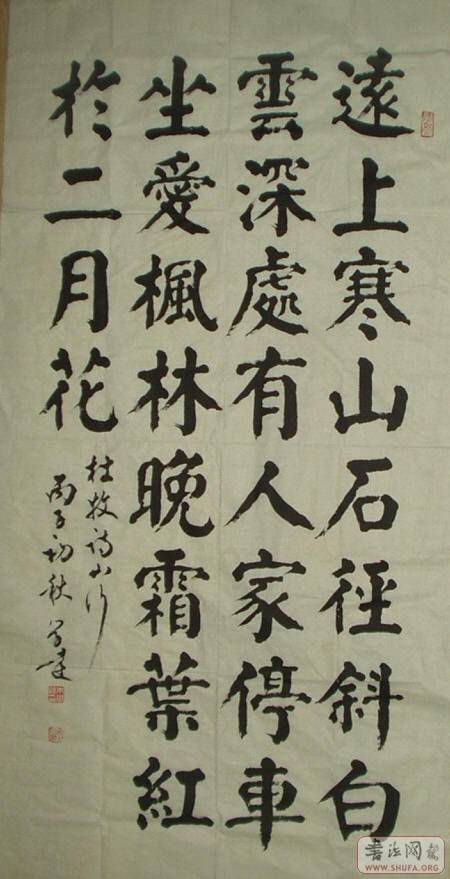 遠上寒山石徑斜白
雲深處有人家停車
坐愛楓林晚霜葉紅
於二月花
杜牧詩山行
丙子初秋
書法网
WWW.SHUFA.ORG